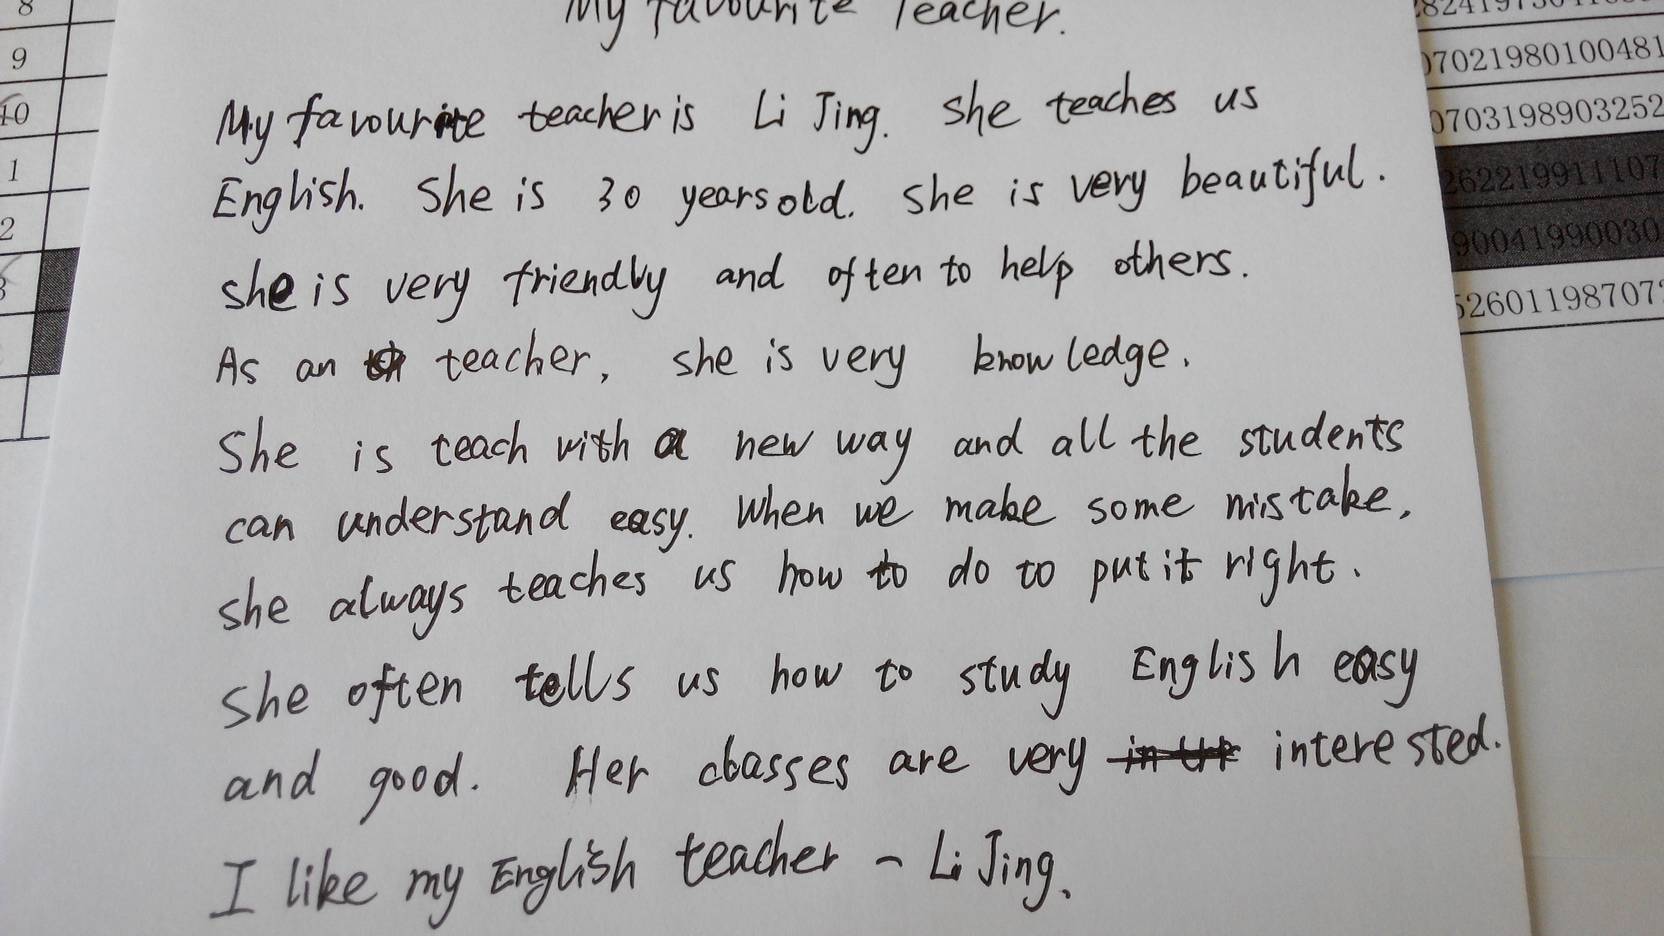 My favourite Teacher.
My favourite teacher is Li Jing. She teaches us
English. She is 30 years old. She is very beautiful.
she is very friendly and often to help others.
As an teacher, she is very knowledge.
She is teach with a new way and all the students
can understand easy. When we make some mistake,
she always teaches us how to do to put it right.
She often tells us how to study English easy
and good. Her classes are very interested.
I like my English teacher - Li Jing.
8
9
10
1
2
3
07021980100481
0703198903252
2622199111107
90041990030
52601198707